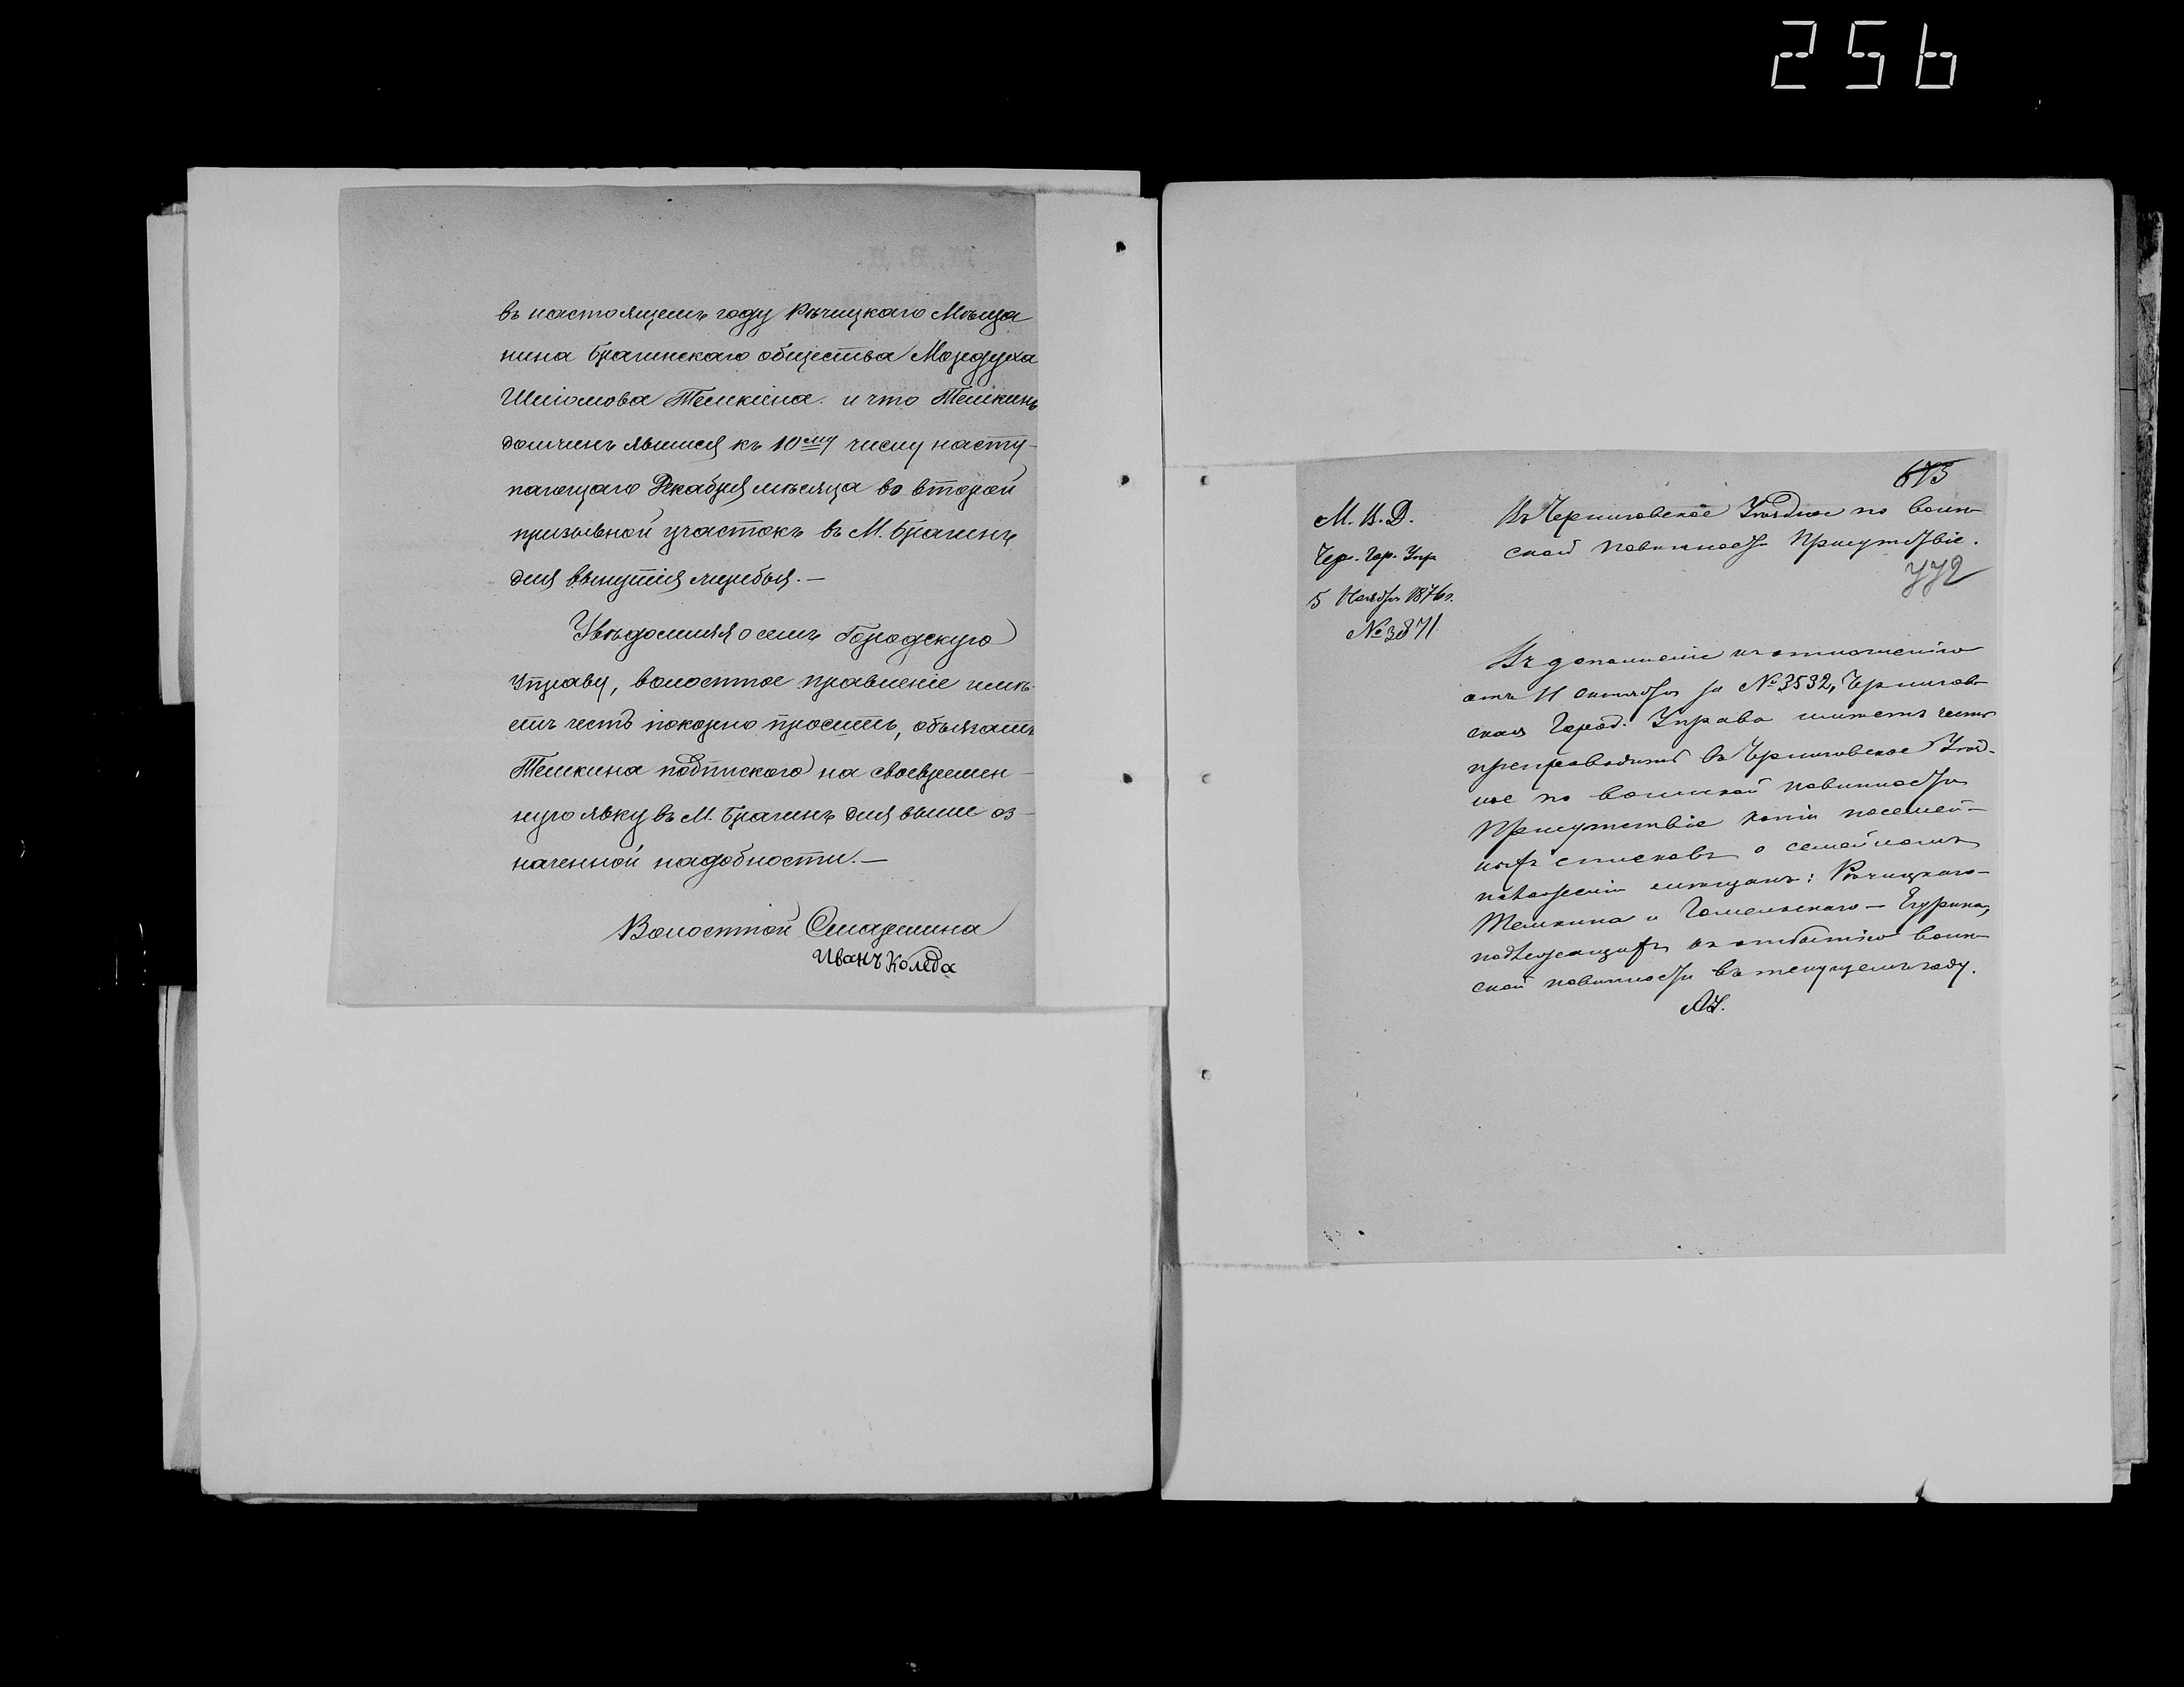 256
въ настоящемъ году Рѣчицкаго Мѣща
нина Брагинскаго общества Мордуха
Шліомова Темкина и что Темкинъ
долженъ явится къ 10му числу насту-
пающаго Декабря мѣсяца во второй
призывной участокъ въ М. Брагинъ
для вынутія жребья. —
Увѣдомляя о семъ Городскую
Управу, волостное правленіе имѣ-
етъ честь покорно просить, обязать
Темкина подпискою на своевремен-
ную явку въ М. Брагинъ для выше оз-
наченной надобности. —
Волостной Старшина
Иванъ Коледа
615
М. В. Д.
Чер. Гор. Упр
5 Ноября 1876 г.
№ 3871
Въ Черниговское Уѣздное по воин-
ской повинности Присутствіе.
Въ дополненіе къ отношенію
отъ 11 Октября за № 3532, Чернигов-
ская Город. Управа имѣетъ честь
препроводить въ Черниговское Уѣзд-
ное по воинской повинности
Присутствіе копіи посемей-
ныхъ списковъ о семейномъ
положеніи мѣщанъ: Рѣчицкаго —
Темкина и Гомельскаго —
подлежащихъ къ отбытію воин-
ской повинности въ текущемъ году.